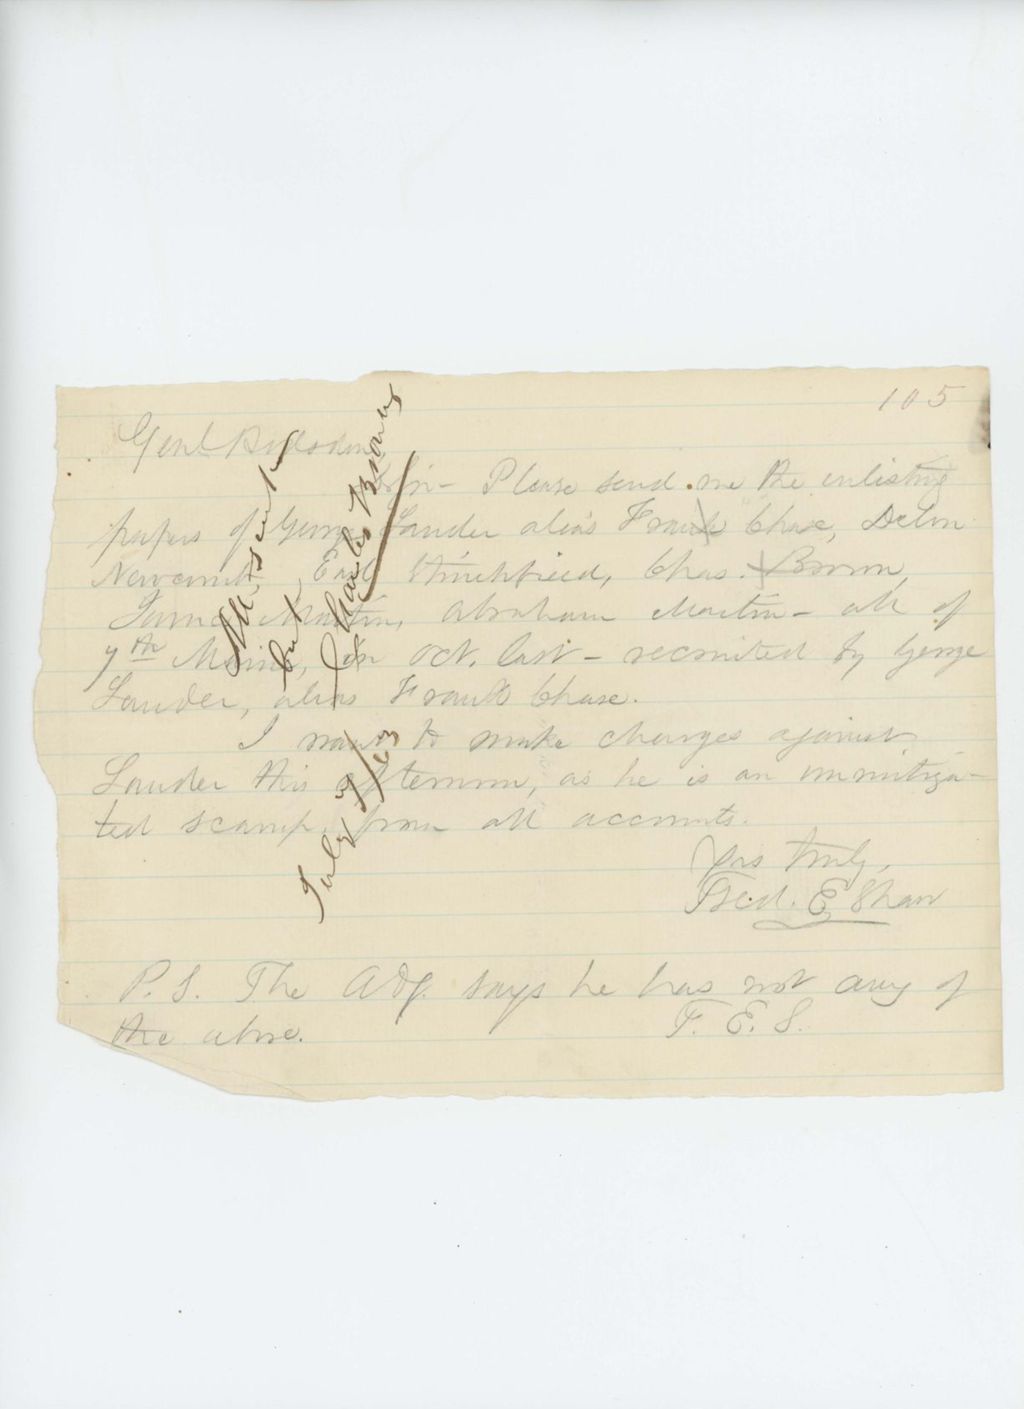 105
Genl Hodsdon
Sir - Please send me the enlisting
papers of George Lander alias Frank Chase, Delon
Newcomb, Earl Stinchfield, Chas. Brown,
James Martin, Abraham Martin - all of
7th Maine, in Oct. last - recruited by George
Lander, alias Frank Chase.
I want to make charges against
Lander this afternoon, as he is an unmitiga-
ted scamp, from all accounts.
Yrs truly,
Fred. E. Shaw
P.S. The Adj. says he has not any of
the above. F. E. S.
All sent
but Charles Brown
July 3/63